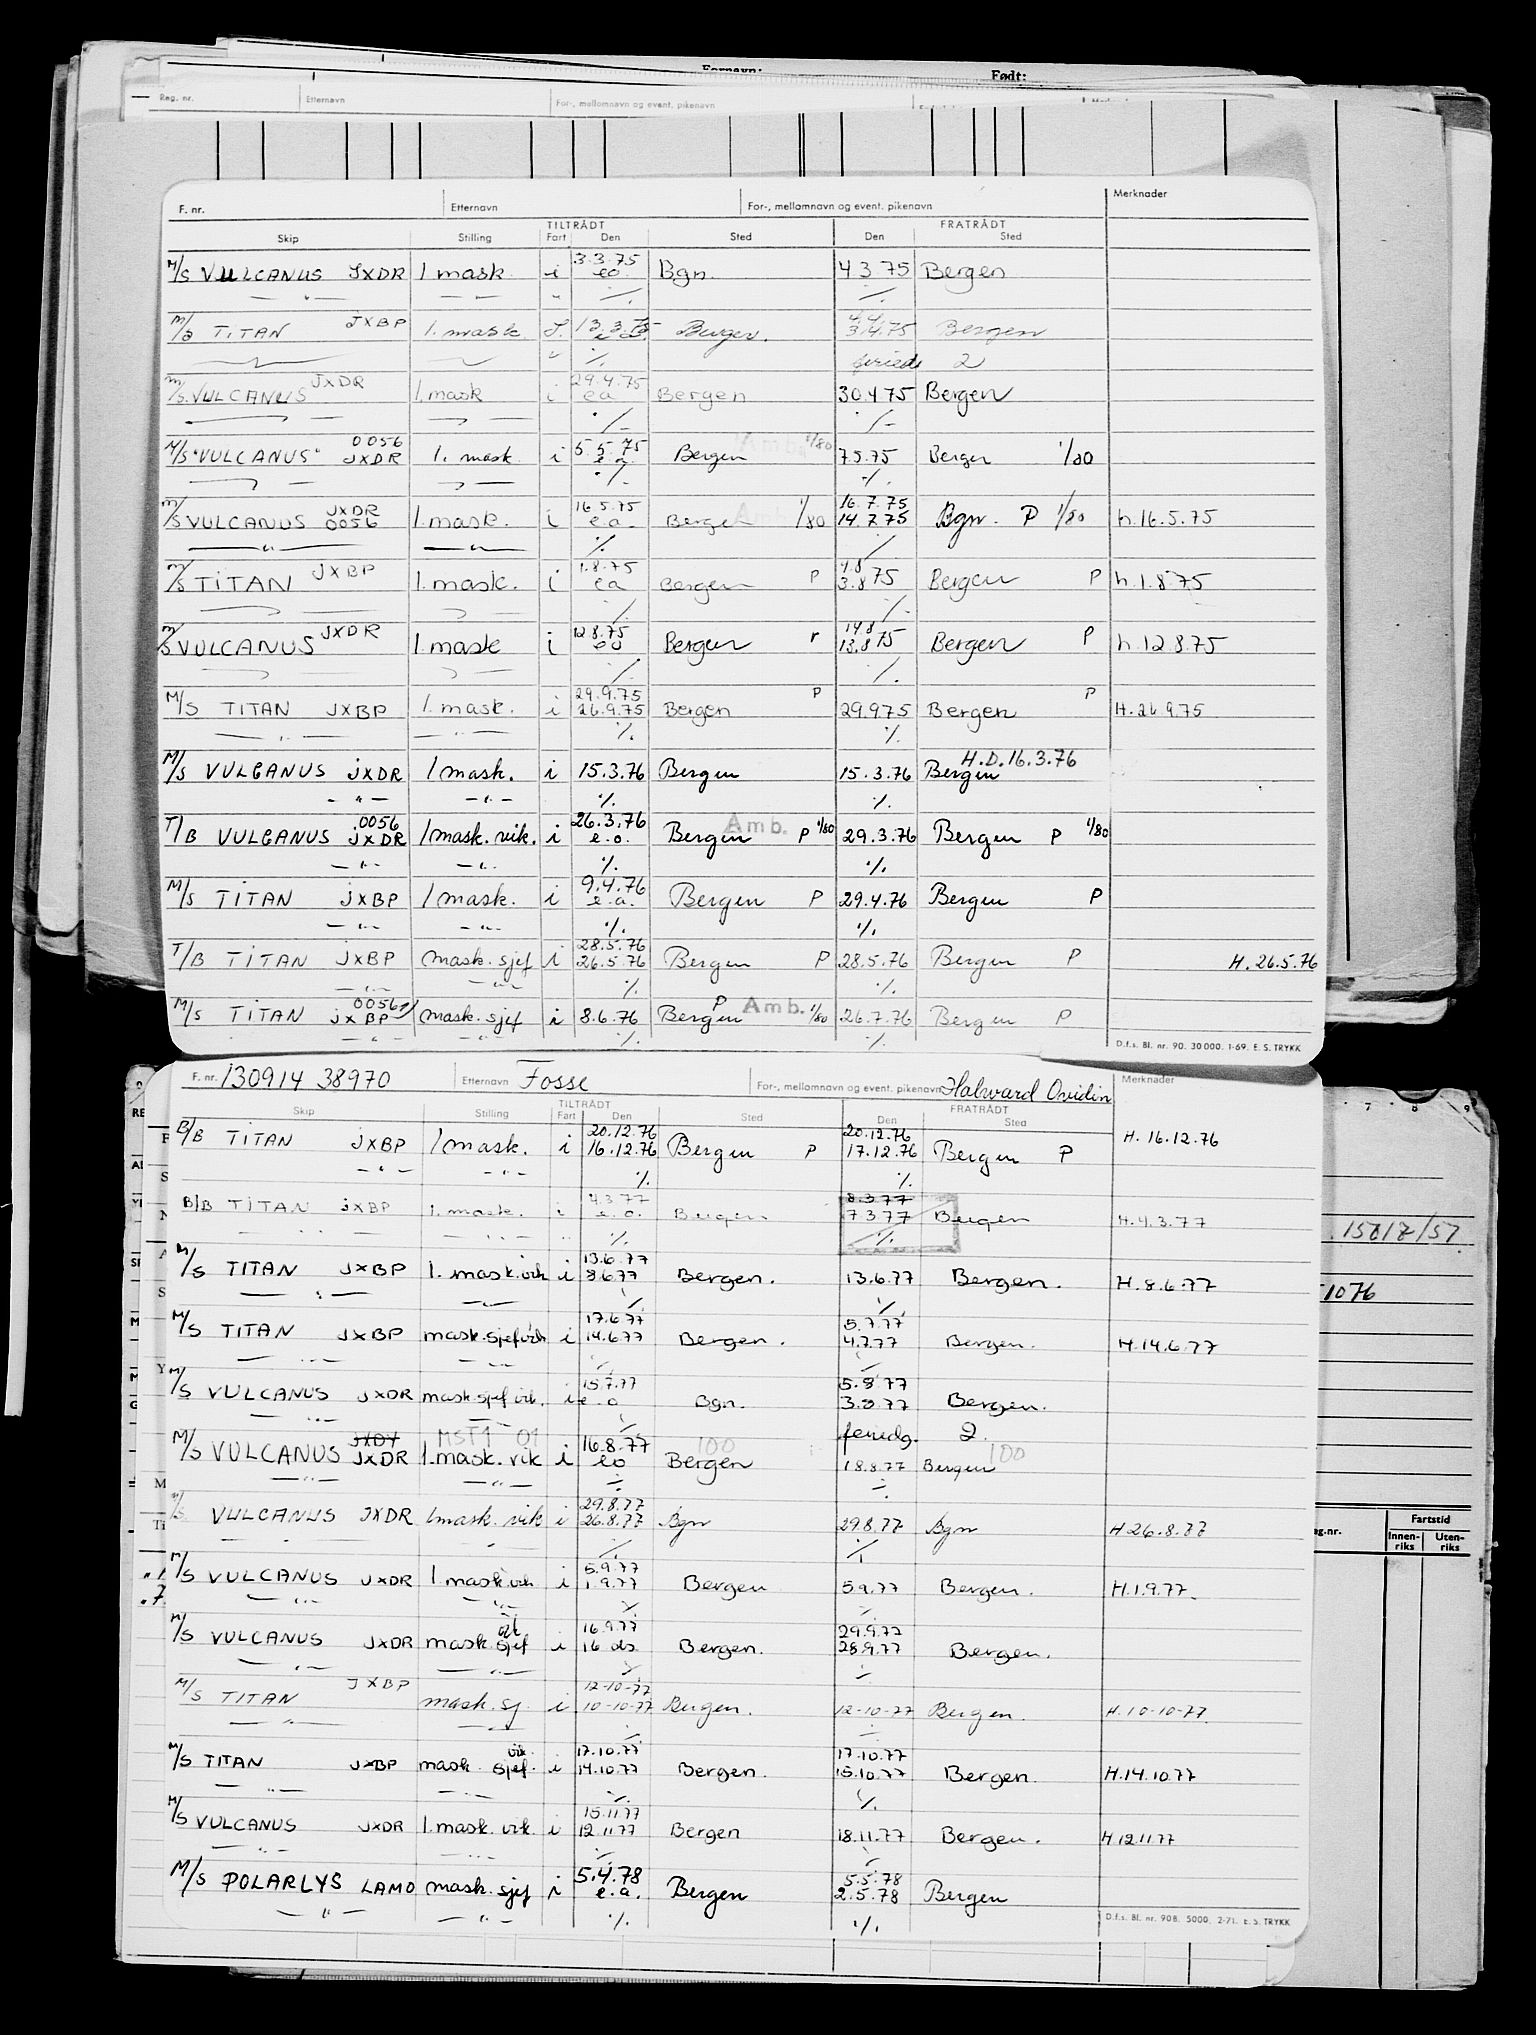 Fornavn: Født:
Reg. nr. Etternavn For-, mellomnavn og event. pikenavn
F. nr. Etternavn For-, mellomnavn og event. pikenavn Merknader
TILTRÅDT FRATRÅDT
Skip Stilling Fart Den Sted Den Sted
3.3.75
M/S VULCANUS JXDR 1 mask. i eo. Bgn. 4 3 75 Bergen
M/S TITAN JXBP 1. mask. 13.3.75 Bergen. 3.4.75 Bergen
feried 2
29.4.75
M/S. VULCANUS JXDR 1. mask i ea Bergen 30.4 75 Bergen
0056 5.5.75 Amb. 1/80
M/S "VULCANUS" JXDR 1. mask i e.a. Bergen 7.5.75 Bergen 1/80
JXDR 16.5.75 16.7.75
M/S VULCANUS 0056 1. mask. i e.a. Bergen 1/80 14.7.75 Bgn. P 1/80 h.16.5.75
JXBP 1.8.75 4.8
M/S TITAN 1. mask. i ea Bergen P 3.8 75 Bergen P h.1.8.75
JXDR 12.8.75 14.8
M/S VULCANUS 1. mask i eo Bergen 13.8 75 Bergen P h.12.8.75
29.9.75 P P
M/S TITAN JXBP 1. mask. i 26.9.75 Bergen 29.9.75 Bergen H.26.9.75
H.D.16.3.76
M/S VULCANUS JXDR 1 mask. i 15.3.76 Bergen 15.3.76 Bergen
0056 26.3.76 Amb.
T/B VULCANUS JXDR 1 mask. vik. i e.o. Bergen P 1/80 29.3.76 Bergen P 1/80
9.4.76
M/S TITAN JXBP 1 mask. i e.a. Bergen P 29.4.76 Bergen P
28.5.76
T/B TITAN JXBP mask. sjef i 26.5.76 Bergen P 28.5.76 Bergen P H. 26.5.76
0056 P Amb.
M/S TITAN JXBP mask. sjef i 8.6.76 Bergen 1/80 26.7.76 Bergen P
D.f.s. Bl. nr. 90. 30 000. 1-69. E. S. TRYKK
F. nr. 130914 38970 Etternavn Fosse For-, mellomnavn og event. pikenavn Halvard Ovidin Merknader
TILTRÅDT FRATRÅDT
Skip Stilling Fart Den Sted Den Sted
20.12.76 20.12.76
B/B TITAN JXBP 1 mask. i 16.12.76 Bergen P 17.12.76 Bergen P H. 16.12.76
4.3.77 8.3.77
B/B TITAN JXBP 1. mask. i e.o. Bergen 7.3.77 Bergen H.4.3.77
13.6.77
M/S TITAN JXBP 1. mask. vik i 8.6.77 Bergen. 13.6.77 Bergen. H.8.6.77
17.6.77 5.7.77
M/S TITAN JXBP mask.sjef vik i 14.6.77 Bergen. 4.7.77 Bergen. H.14.6.77
15.7.77 5.8.77
M/S VULCANUS JXDR mask.sjef vik. i e.o Bgn. 3.8.77 Bergen.
feriedg. 2.
MST1 01 16.8.77 100 100
M/S VULCANUS JXDR 1. mask. vik i eo Bergen 18.8.77 Bergen
29.8.77
M/S VULCANUS JXDR 1 mask. vik i 26.8.77 Bgn 29.8.77 Bgn H 26.8.77
5.9.77
M/S VULCANUS JXDR 1 mask vik i 1.9.77 Bergen 5.9.77 Bergen. H.1.9.77.
vik 16.9.77 29.9.77
M/S VULCANUS JXDR mask. sjef i 16 ds Bergen. 28.9.77 Bergen.
JXBP 12-10-77
M/S TITAN mask. sj. i 10-10-77 Bergen. 12-10-77 Bergen. H.10-10-77.
vik. 17.10.77 17.10.77
M/S TITAN JXBP mask. sjef. i 14.10.77 Bergen. 15.10.77 Bergen. H.14.10.77
15.11.77
M/S VULCANUS JXDR 1. mask. vik. i 12.11.77 Bergen 18.11.77 Bergen. H.12.11.77
5.4.78 5.5.78
M/S POLARLYS LAMO mask. sjef i e.a. Bergen 2.5.78 Bergen
D.f.s. Bl. nr. 908. 5000. 2-71. E. S. TRYKK
7 8 9
1076
Fartstid
Innen-riks Uten-riks